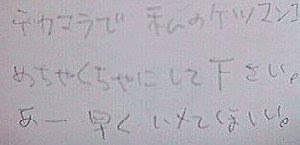 デカマラで 私のケツマンコ
めちゃくちゃにして下さい。
あー 早く いれてほしい。